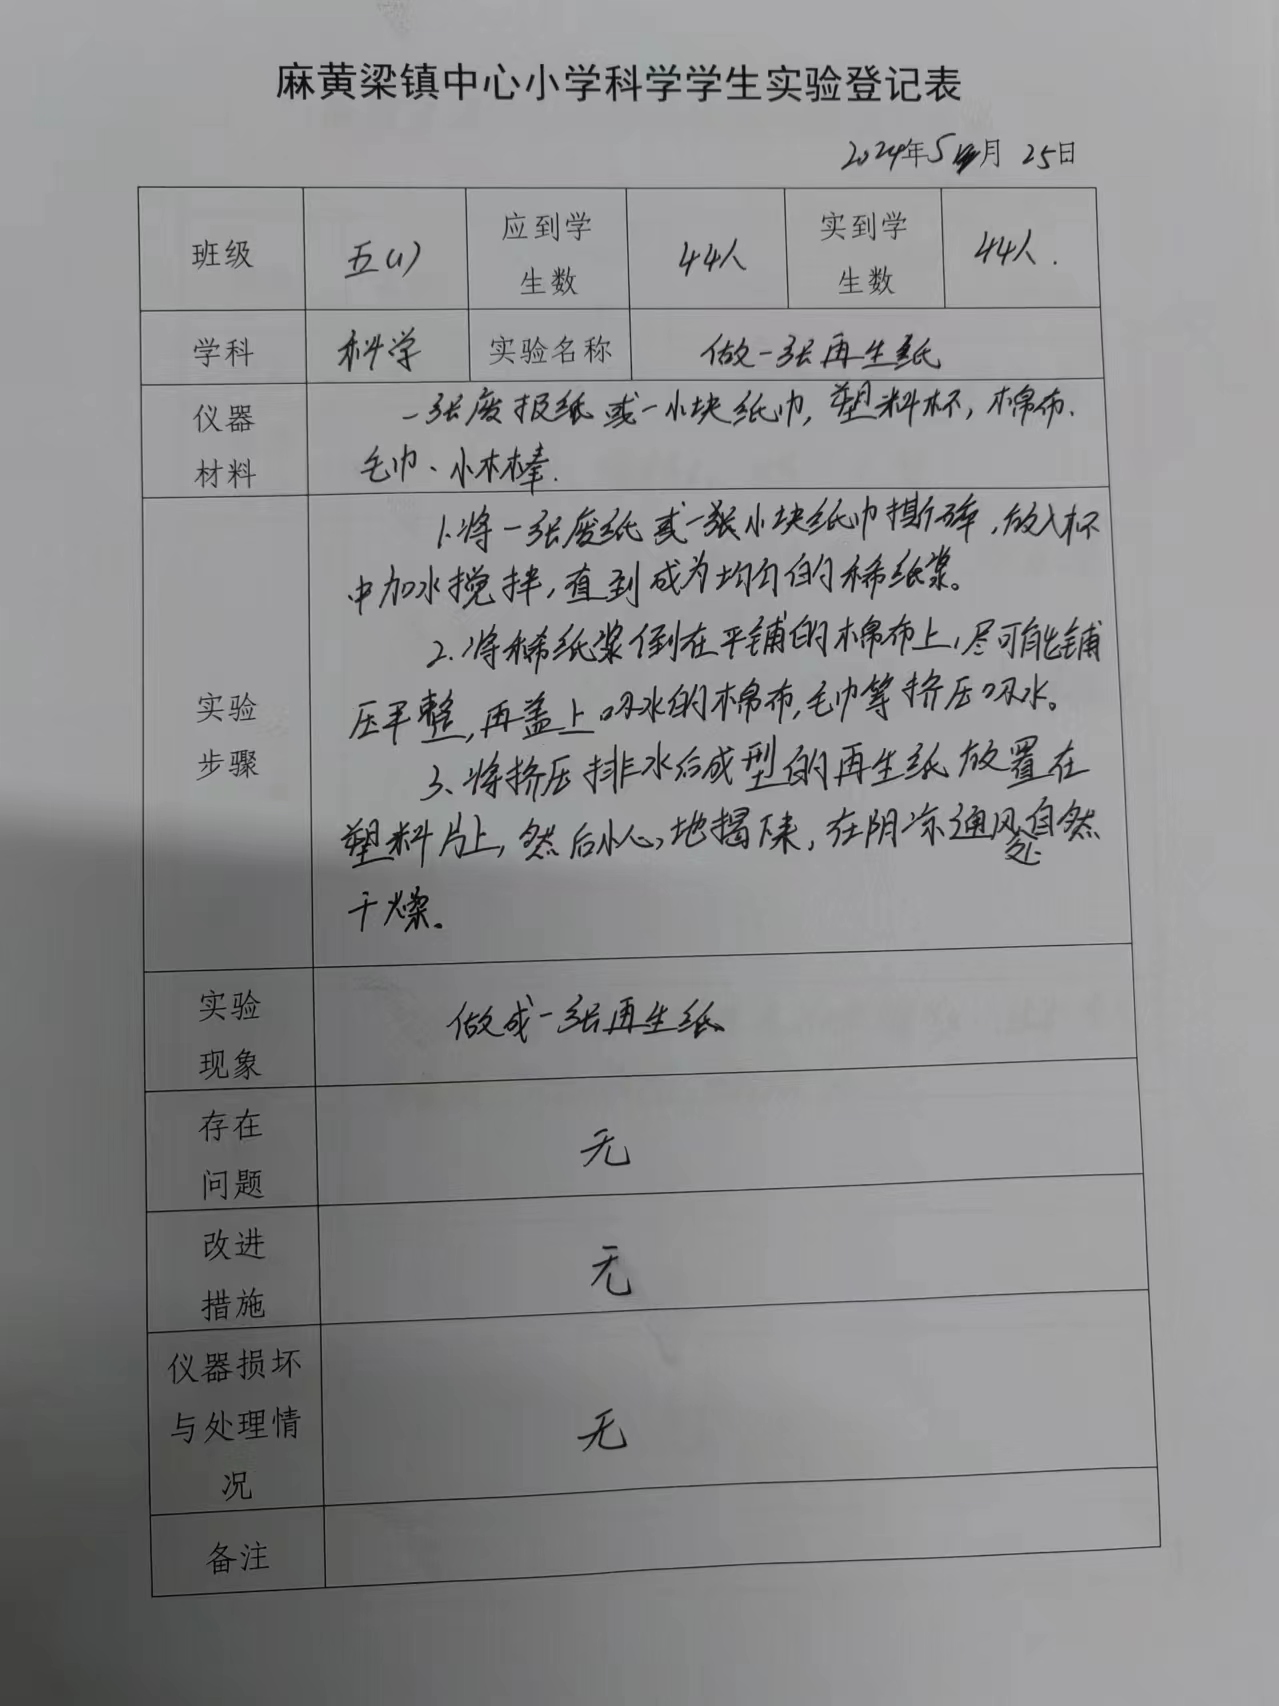 麻黄梁镇中心小学科学学生实验登记表
2024年5月25日
班级 五(1) 应到学生数 44人 实到学生数 44人.
学科 科学 实验名称 做一张再生纸
仪器材料
一张废报纸或一小块纸巾,塑料杯,棉布.
毛巾、小木棒.
实验步骤
1.将一张废纸或一张小块纸巾撕碎,放入杯
中加水搅拌,直到成为均匀的稀纸浆。
2.将稀纸浆倒在平铺的棉布上,尽可能铺
压平整,再盖上吸水的棉布,毛巾等挤压吸水。
3、将挤压排水后成型的再生纸放置在
塑料片上,然后小心地揭下来,在阴凉通风处自然
干燥。
实验现象
做成一张再生纸
存在问题
无
改进措施
无
仪器损坏与处理情况
无
备注